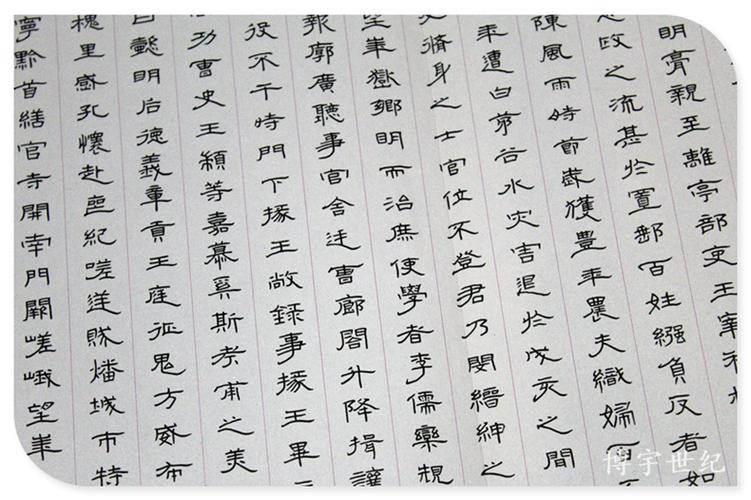 明膏親至離亭部吏王宰程
政之流甚於置郵百姓繦負反者如
陳風雨時節歲獲豐年農夫織婦百
年遭白茅谷水災害退於戌亥之間
及脩身之士官位不登君乃閔縉紳之
望華嶽鄉明而治庶使學者李儒欒規
報廓廣聽事官舍廷曹廊閣升降揖讓
役不干時門下掾王敞錄事掾王畢
功曹史王顓等嘉慕奚斯考甫之美
曰懿明后德義章貢王庭征鬼方威布
槐里感孔懷赴喪紀嗟逆賊燔城市特
寧黔首繕官寺開南門闕嵯峨望華
博宇世纪